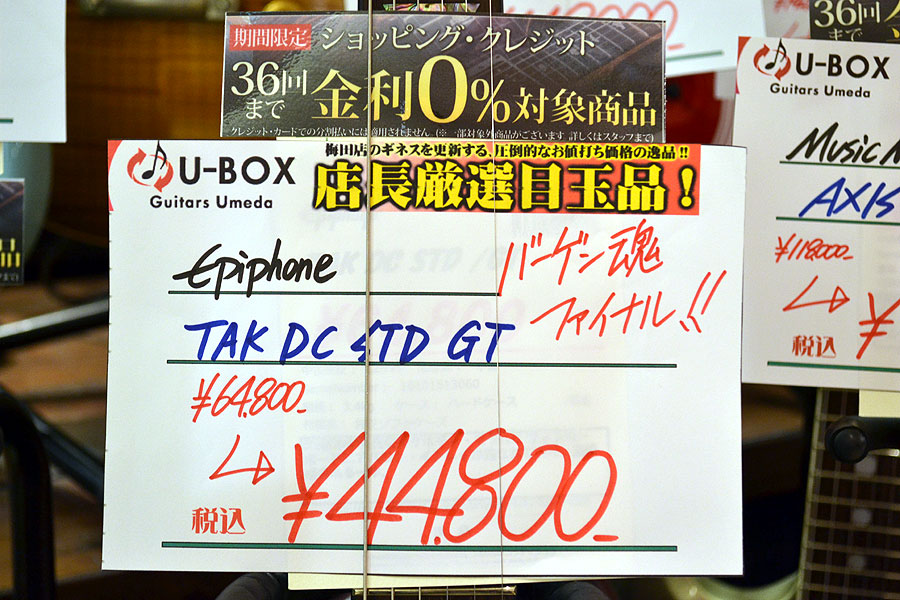 期間限定 ショッピング・クレジット
36回まで 金利0%対象商品
クレジット・カードでの分割払いには適用されません (※一部対象外商品がございます 詳しくはスタッフまで)
U-BOX
Guitars Umeda
梅田店のギネスを更新する、圧倒的なお値打ち価格の逸品!!
店長厳選目玉品!
Epiphone
バーゲン魂
ファイナル!!
TAK DC STD GT
¥64.800-
税込 ¥44.800-
36回
U-BOX
Guitars Umeda
Music M
AXIS
¥118000-
税込 ¥
品